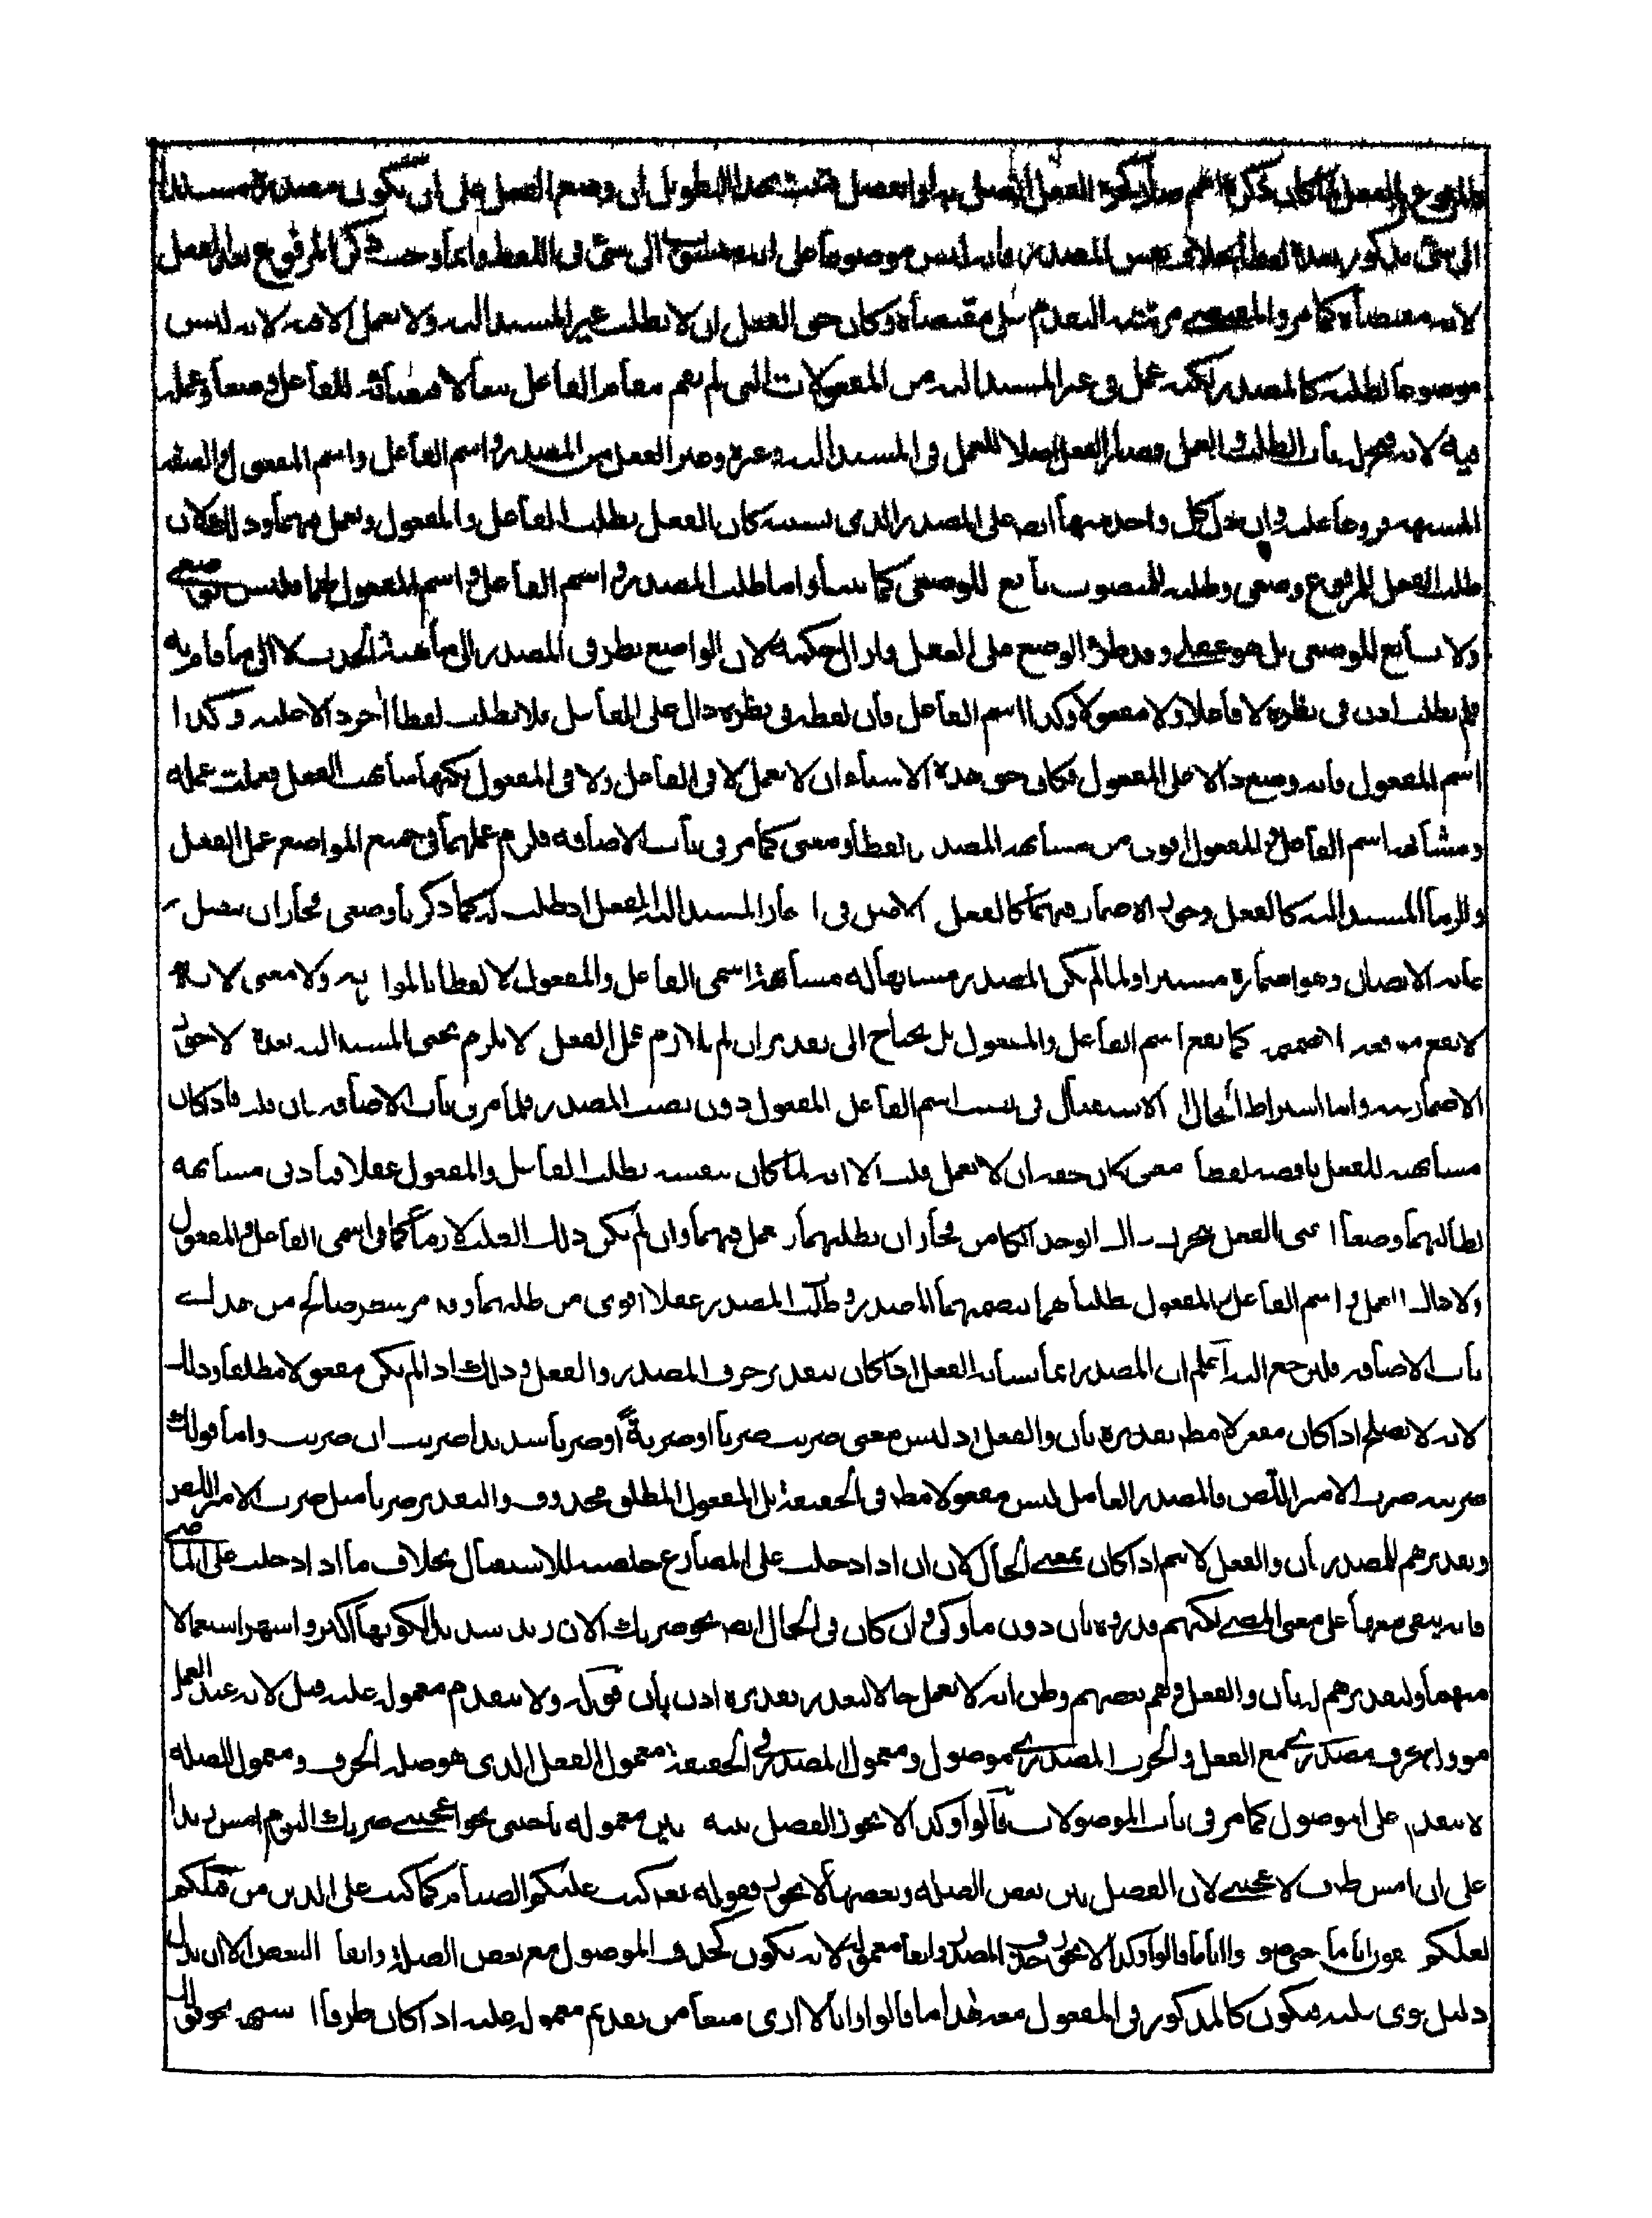 والمرفوع بالفعل كان ذكره أهم صار كجزء الفعل اتصل به أو انفصل فثبت بهذا التطويل ان وضع الفعل على ان يكون مصدره مسندا
الى شئ مذكور بعده لفظا بخلاف نفس المصدر فانه ليس موضوعا على انه منسوب الى شئ في اللفظ وانما وجب ذكر المرفوع بعد الفعل
لانه مقتضاه كما مر والمقتضى مرتبته التقدم على مقتضاه وكان حق الفعل ان لا يطلب غير المسند اليه ولا يعمل الا فيه لانه ليس
موضوعا لطلبه كالمصدر لكنه عمل في غير المسند اليه من المفعولات التي لم تقم مقام الفاعل تبعا لاقتضائه للفاعل وضعا وعمله
فيه لانه فتح له باب الطلب والعمل فصار الفعل اصلا للعمل في المسند اليه وغيره وصير الفعل من المصدر واسم الفاعل واسم المفعول والصفة
المشبهة فروعا عليه وان دل كل واحد منها ايضا على المصدر الذي بسببه كان الفعل يطلب الفاعل والمفعول ويعمل فيهما وذلك لان
طلب الفعل للمرفوع وضعي وطلبه للمنصوب تابع للوضعي كما بينا واما طلب المصدر واسم الفاعل واسم المفعول لهما فليس بوضعي
ولا بتابع للوضعي بل هو عقلي وقد طرأ الوضع على العقل وازال حكمه لان الواضع نظر في المصدر الى ماهية الحدث لا الى ما قام به
فلم يطلب اذن في نظره لا فاعلا ولا مفعولا وكذا اسم الفاعل فان لفظه في نظره دال على الفاعل فلا يطلب لفظا آخر دالا عليه وكذا
اسم المفعول فانه وضع دالا على المفعول فكان حق هذه الاشياء ان لا تعمل لا في الفاعل ولا في المفعول لكنها شابهت الفعل فعملت عمله
ومشابهة اسم الفاعل والمفعول اقوى من مشابهة المصدر لفظا ومعنى كما مر في باب الاضافة فلزم عملهما في جميع المواضع عمل الفعل
ولزما المسند اليه كالفعل وجوز الاضمار فيهما كالفعل الاصل في اضمار المسند اليه الفعل اذ طلبه له كما ذكرنا وضعي فجاز ان يتصل
غاية الاتصال وهو اضماره مستترا ولما لم يكن المصدر مشابها له مشابهة اسمي الفاعل والمفعول لا لفظا بالموازنة ولا معنى لانه
لا يقع موقعه كما يقع اسم الفاعل والمفعول بل يحتاج الى تقدير ان لم يلازم عمل الفعل ولا يلزم مجئ المسند اليه بعده لا جوز
الاضمار فيه واما اشتراط الحال او الاستقبال في نصب اسم الفاعل والمفعول دون نصب المصدر فلما مر في باب الاضافة فان قلت فاذا كان
مشابهته للفعل ناقصة لفظا ومعنى كان حقه ان لا يعمل قلت الا انه لما كان بنفسه يطلب الفاعل والمفعول عقلا فبأدنى مشابهة
لطالبهما وضعا اعني الفعل تحرك ذلك الوجد الكامن فجاز ان يطلبهما ويعمل فيهما وان لم يكن ذلك الطلب لازما كما في اسمي الفاعل والمفعول
ولا كذلك العمل في اسم الفاعل والمفعول لطلبهما لتضمنهما المصدر وطلب المصدر عقلا اقوى من طلبهما وقد مر شطر صالح من هذا في
باب الاضافة فليرجع اليه اعلم ان المصدر انما يشابه الفعل اذا كان بتقدير حرف المصدر والفعل وذلك اذا لم يكن مفعولا مطلقا وذلك
لانه لا يصلح اذا كان مفعولا مط تقديره بان والفعل اذ ليس معنى ضربت ضربا او ضربة او ضربا شديدا ضربت ان ضربت واما قولك
ضربته ضرب الامير اللص فالمصدر العامل ليس مفعولا مطلقا في الحقيقة بل المفعول المطلق محذوف والتقدير ضربا مثل ضرب الامير اللص
وتقديرهم للمصدر بأن والفعل لا يتم اذا كان بمعنى الحال لان ان اذا دخلت على المضارع خلصته للاستقبال بخلاف ما اذا دخلت على الماضي
فانه يبقى معها على معنى المضي لكنهم قدروه بأن دون ما وكي وان كان في الحال ايضا نحو ضربك الان زيدا شديد لكونها اكثر واشهر استعمالا
منهما ولتقديرهم له بأن والفعل وهم بعضهم وظن انه لا يعمل حالا لتعذر تقديره اذن بأن قوله ولا يتقدم معموله عليه قيل لانه عند العمل
مؤول بحرف مصدري مع الفعل والحرف المصدري موصول ومعمول المصدر في الحقيقة معمول الفعل الذي هو صلة الحرف ومعمول الصلة
لا يتقدم على الموصول كما مر في باب الموصولات قالوا وكذا لا يجوز الفصل بينه وبين معموله باجنبي نحو اعجبني ضربك اليوم امس زيدا
على ان امس ظرف لاعجبني لان الفصل بين بعض الصلة وبعضها لا يجوز وقوله تعالى كتب عليكم الصيام كما كتب على الذين من قبلكم
لعلكم تتقون اياما اي صوموا اياما قالوا وكذا لا يجوز حذف المصدر وابقاء معموله لانه يكون كحذف الموصول مع بعض الصلة وابقاء البعض الا ان يدل
دليل قوي عليه فيكون كالمذكور في المفعول معه هذا ما قالوا وانا لا ارى منعا من تقدم معموله عليه اذا كان ظرفا او شبهه نحو قولك